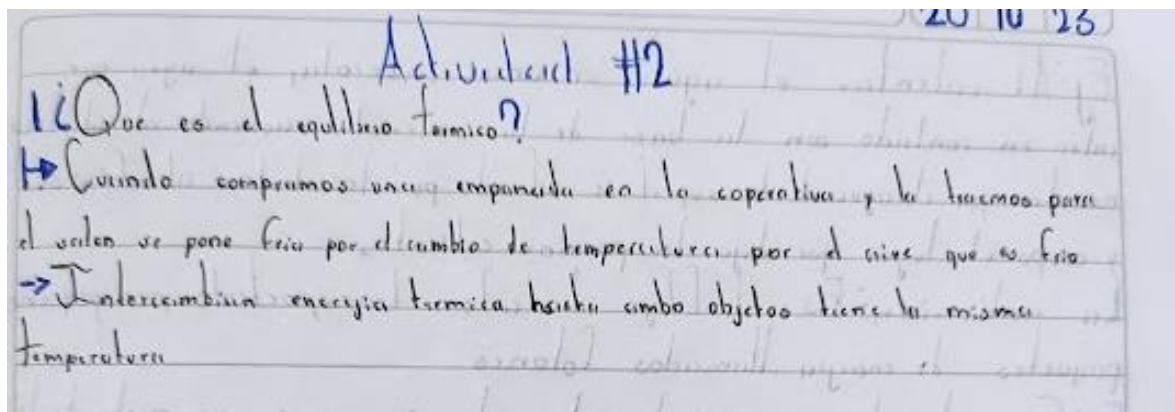 20 10 23
Actividad #2
1 ¿Que es el equilibrio termico?
Cuando compramos una empanada en la coperativa y la traemos para
el salon se pone fria por el cambio de temperatura por el aire que es frio
→ Intercambian energia termica hasta ambo objetos tiene la misma
temperatura